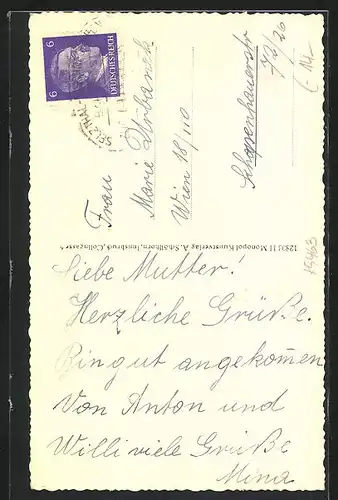 6 6
DEUTSCHES REICH
SELZTHAL
Frau
Marie Urbanek
Wien 18/110
Schopenhauerstr
72/26
(-14-
1293 H Monopol Kunstverlag A. Schöllhorn, Innsbruck, Collingasse
Liebe Mutter!
Herzliche Grüße.
Bin gut angekom̅en
Von Anton und
Willi viele Grüße
Mina